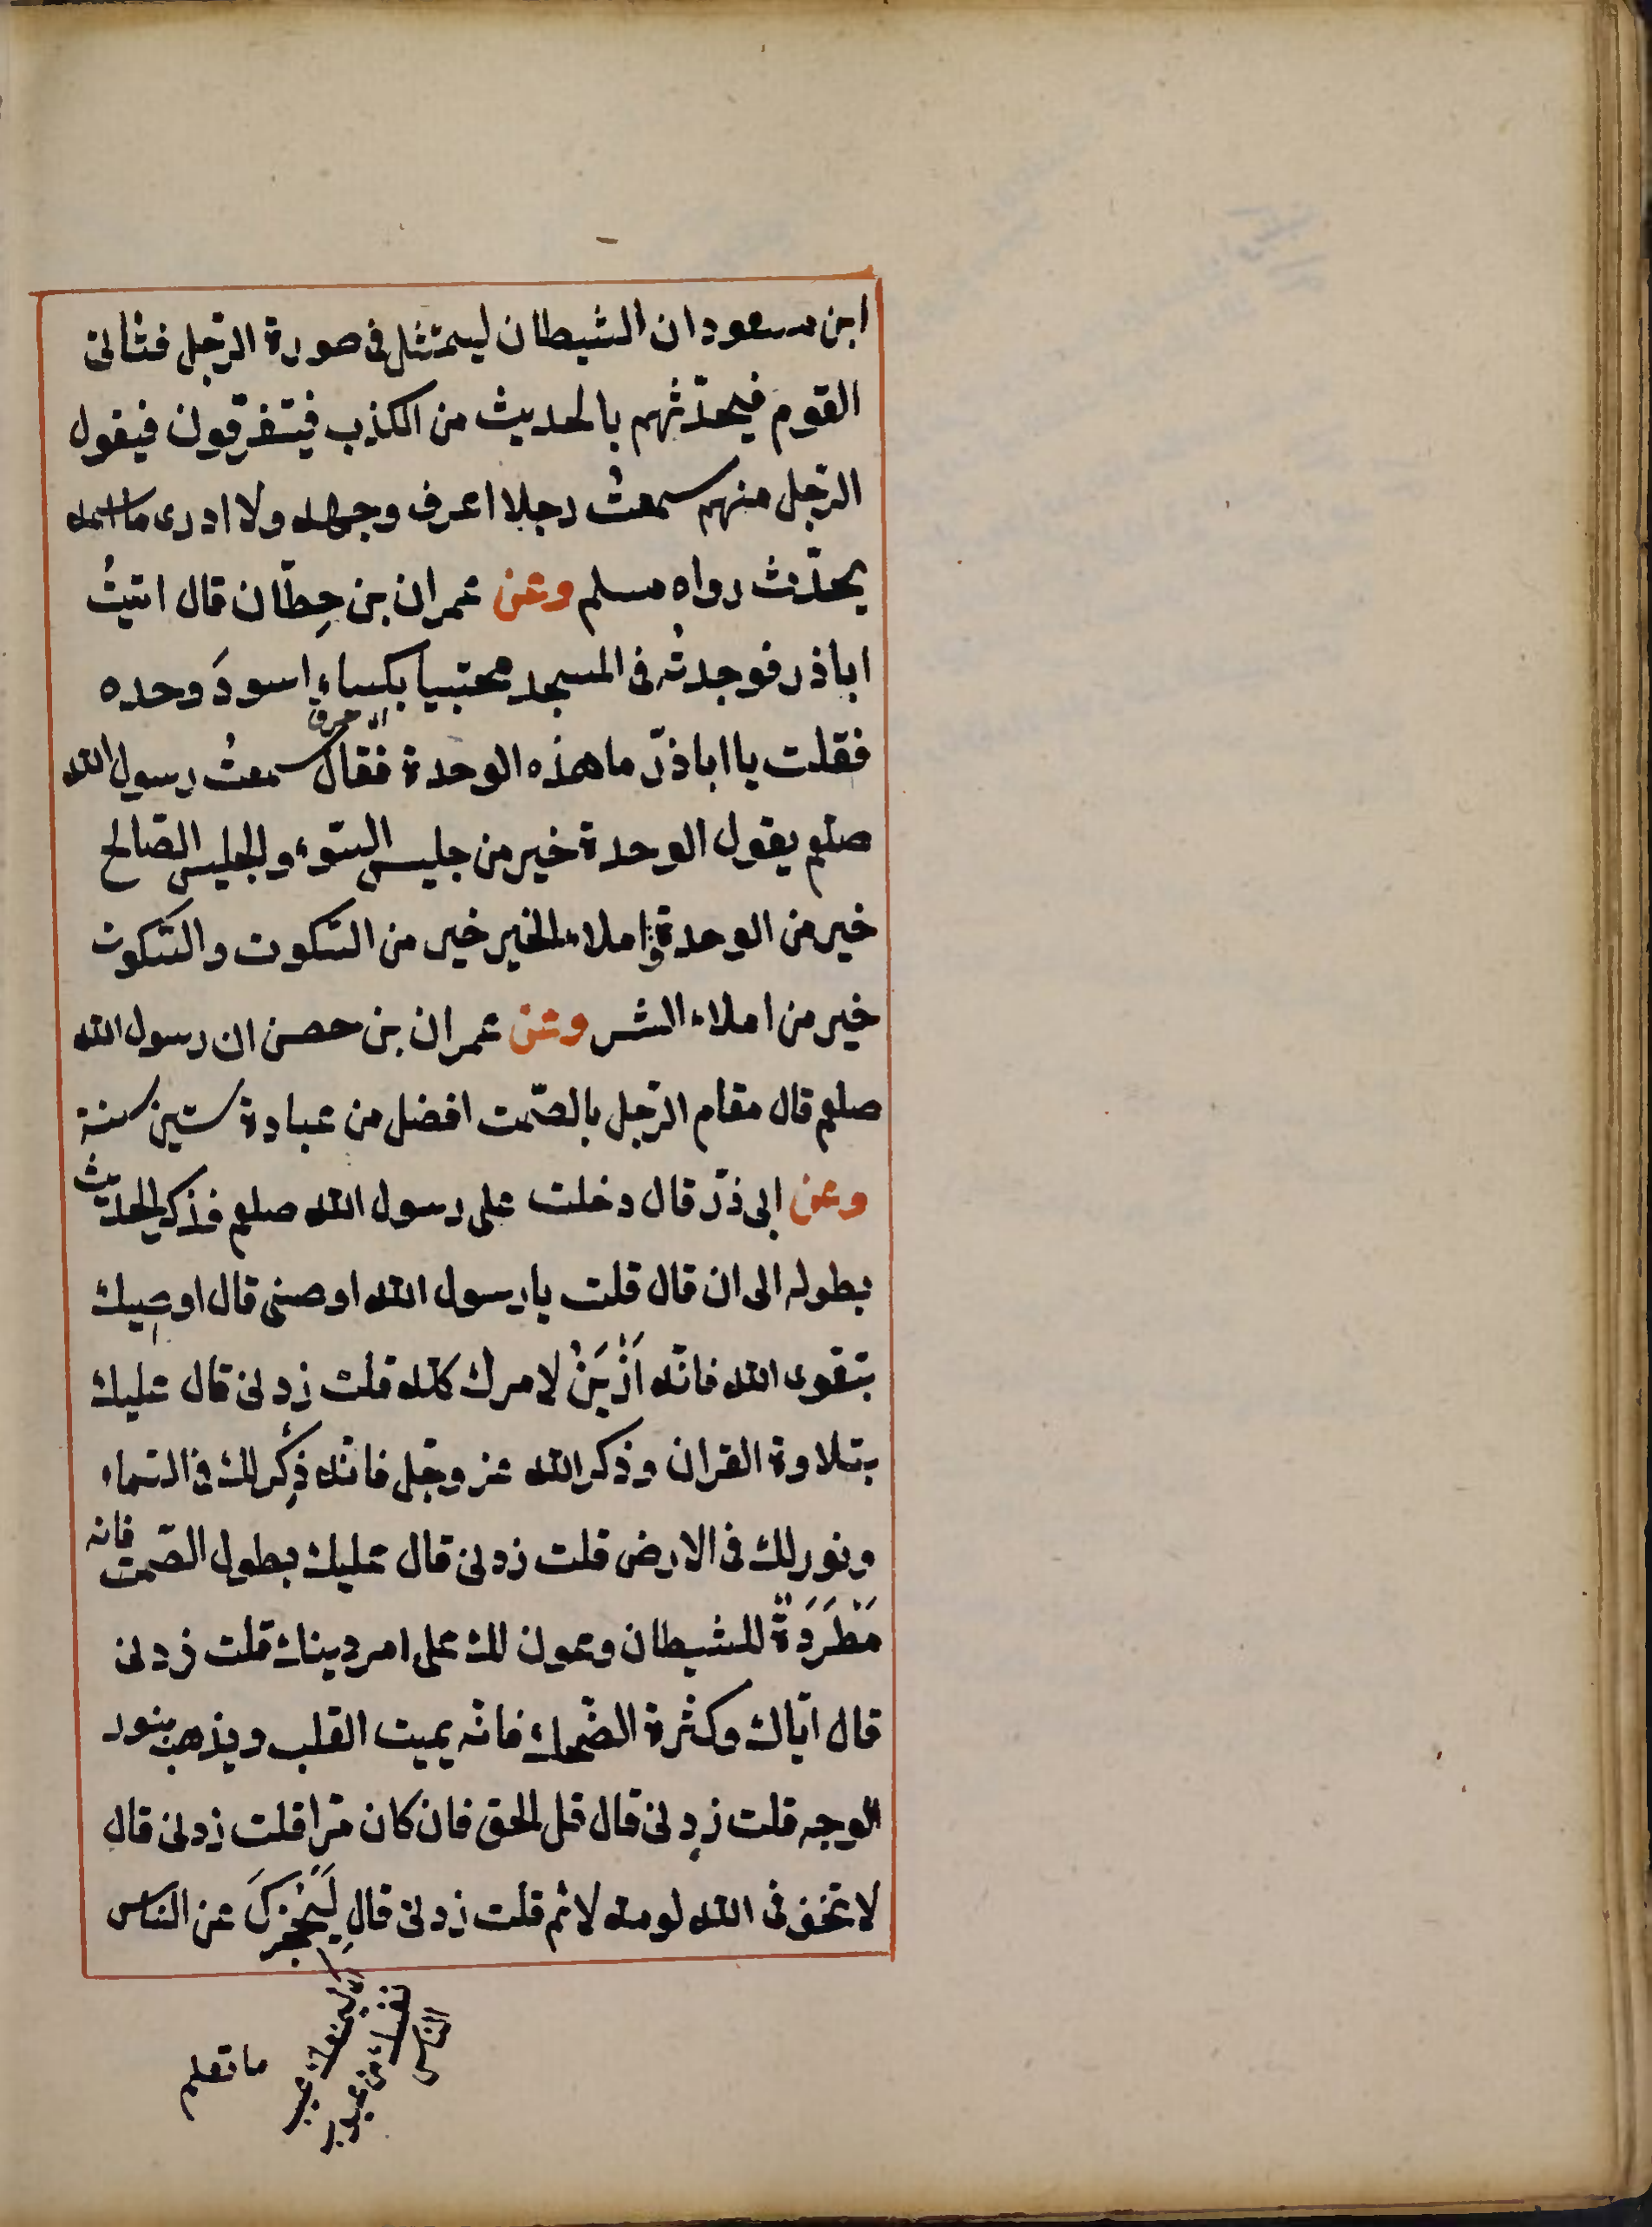 ابن مسعود ان الشيطان ليتمثل فى صورة الرّجل فتأتى
القوم فيحدّثهم بالحديث من الكذب فيتفرّقون فيقول
الرّجل منهم سمعتُ رجلا اعرف وجهه ولا ادرى ما اسمه
يحدّث رواه مسلم وعن عمران بن حِطّان قال اتيتُ
اباذر فوجدتُه فى المسجد محتبيا بكساءٍ اسودَ وحده
فقلت يا اباذرّ ما هذه الوحدة فقال سمعتُ رسول الله
صلعم يقول الوحدة خير من جليس السّوء والجليس الصّالح
خير من الوحدة و املاء الخير خير من السّكوت والسّكوت
خير من املاء الشر وعن عمران بن حصن ان رسول الله
صلعم قال مقام الرّجل بالصّمت افضل من عبادة ستين سنة
وعن ابى ذرّ قال دخلت على رسول الله صلعم فذكر الحديث
بطوله الى ان قال قلت يا رسول الله اوصنى قال اوصيك
بتقوى الله فانّه اَزْيَنُ لامرك كلّه قلت زدنى قال عليك
بتلاوة القران وذكر الله عز وجّل فانّه ذِكْر لك فى السّماء
ونور لك فى الارض قلت زدنى قال عليك بطول الصّمت فانه
مَطْرَدَةٌ للشيطان وعون لك على امر دينك قلت زدنى
قال ايّاك وكثرة الضّحك فانّه يميت القلب ويذهب بنور
الوجه قلت زدنى قال قل الحق فان كان مّرا قلت زدنى قال
لا تخف فى الله لومة لائم قلت زدنى قال لِيَحْجُزكَ عن النّاس
ما تعلم
نفسك من عيوب
الناس